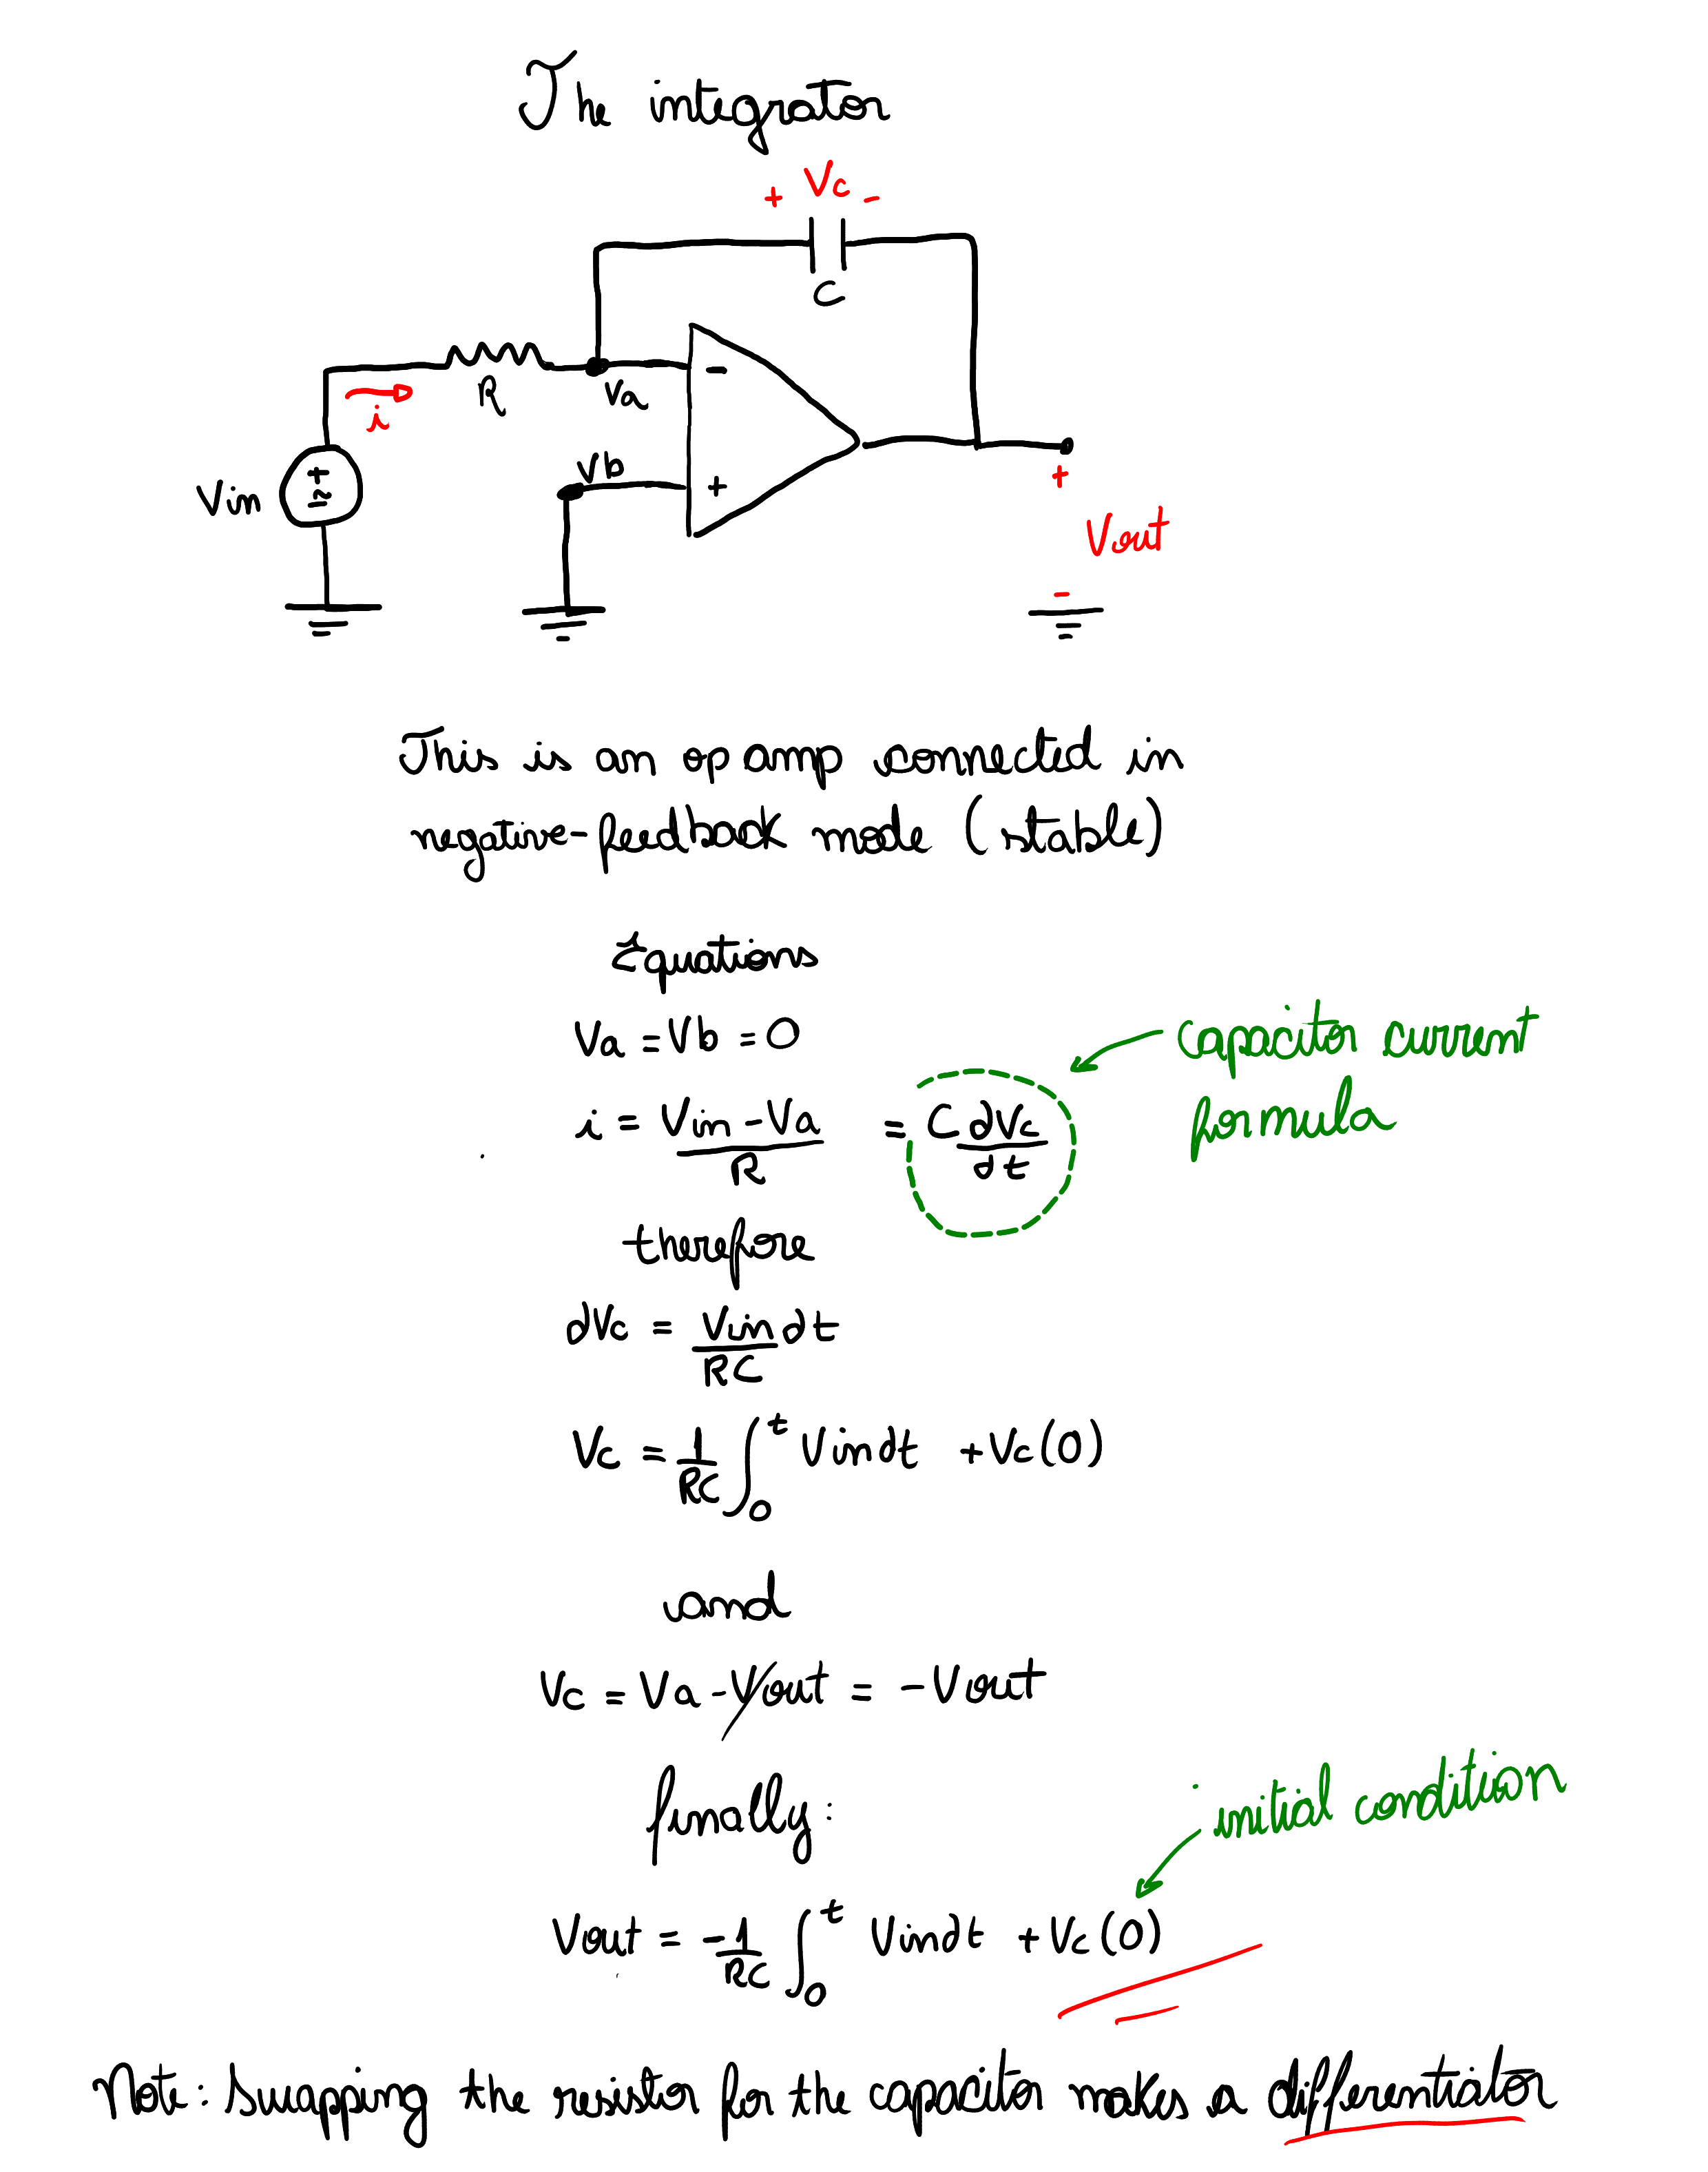 The integrator
+ Vc -
C
R
Va
i
Vb
Vin
+
-
+
+
Vout
-
This is an op amp connected in
negative-feedback mode (stable)
Equations
Va = Vb = 0
i = Vin - Va / R = C dVc / dt
capacitor current
formula
therefore
dVc = Vin / RC dt
Vc = 1 / RC ∫₀ᵗ Vin dt + Vc(0)
and
Vc = Va - Vout = - Vout
finally:
initial condition
Vout = -1 / RC ∫₀ᵗ Vin dt + Vc(0)
Note: Swapping the resistor for the capacitor makes a differentiator